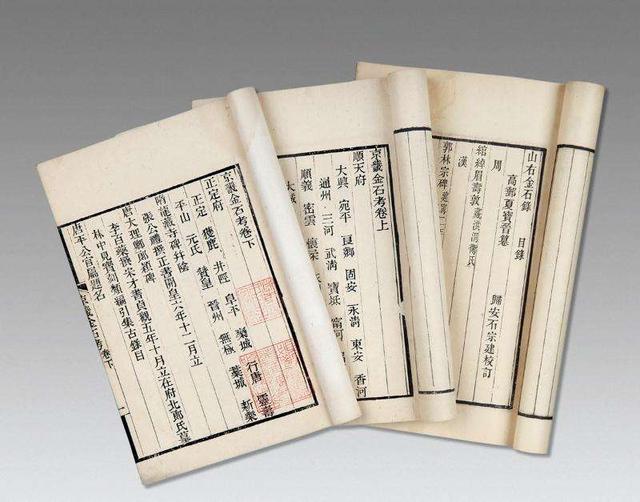 京畿金石考卷下
正定府
正定 獲鹿 井陘 阜平 欒城 行唐 靈壽
平山 元氏 贊皇 晉州 無極 藁城 新樂
隋龍藏寺碑并陰
張公禮撰正書開皇六年十二月立
唐大理卿郎穎碑
李百藥撰宋才書貞觀五年十月立在府北郎氏墓
林中見寶刻類編引集古錄目
唐
京畿金石考卷下
京畿金石考卷上
順天府
大興 宛平 良鄉 固安 永清 東安 香河
通州 三河 武清 寶坻 甯河
順義 密雲 懷柔
大城
山右金石錄 目錄
高郵夏寶晉纂 歸安石宗建校訂
周
綰綽眉壽敦
漢
郭林宗碑